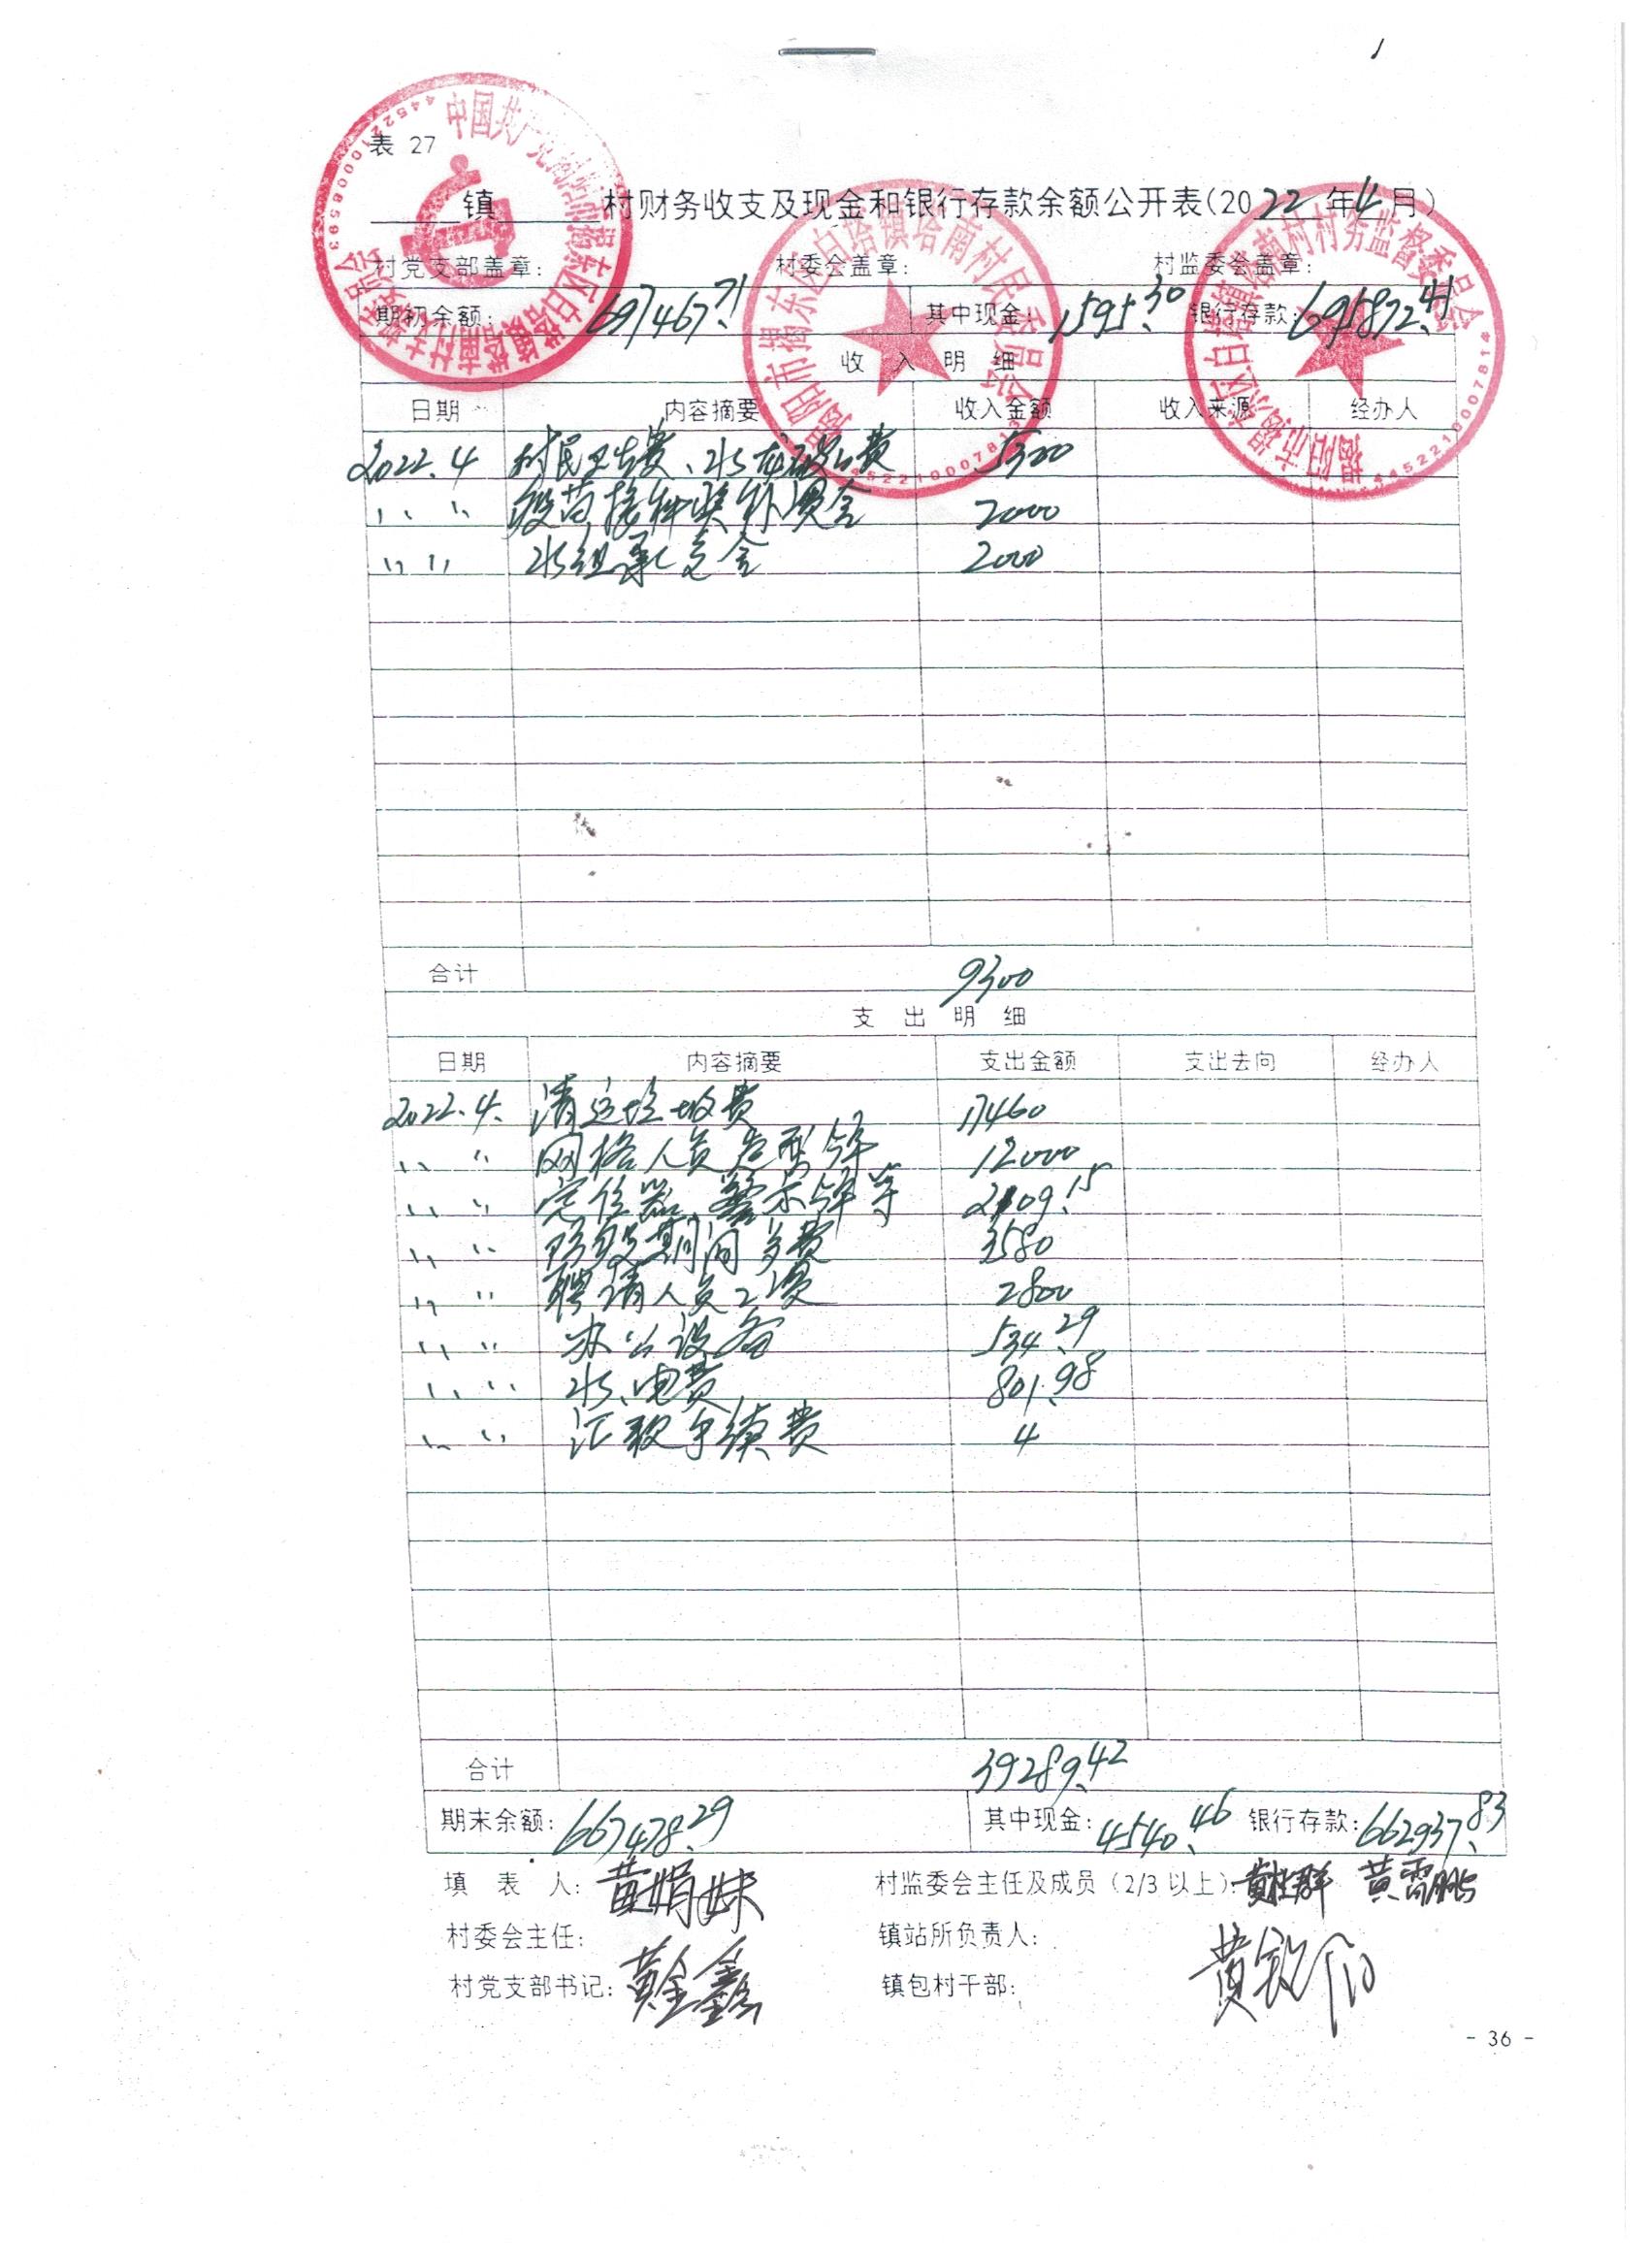 表 27
镇 村财务收支及现金和银行存款余额公开表(2022年4月)
村党支部盖章: 村委会盖章: 村监委会盖章:
期初余额: 697467.71 其中现金: 1595.30 银行存款: 695872.41
收 入 明 细
日期 内容摘要 收入金额 收入来源 经办人
2022.4 村民卫生费、水 费 5300
〃 〃 疫苗接种奖补资金 2000
〃 〃 水组承包金 2000
合计 9300
支 出 明 细
日期 内容摘要 支出金额 支出去向 经办人
2022.4. 清运垃圾费 17460
〃 〃 网格人员 12000
〃 〃 定位器、警示牌等 2109.15
〃 〃 防疫期间 费 3580
〃 〃 聘请人员工资 2800
〃 〃 办公设备 534.29
〃 〃 水、电费 801.98
〃 〃 汇款手续费 4
合计 39289.42
期末余额: 667478.29 其中现金: 4540.46 银行存款: 662937.83
填 表 人: 黄娟妹 村监委会主任及成员(2/3 以上): 黄雪鹏
村委会主任: 镇站所负责人:
村党支部书记: 黄金鑫 镇包村干部:
- 36 -
中国共产党揭阳市揭东区白塔镇塔南村支部委员会
4452210008593
揭阳市揭东区白塔镇塔南村民委员会
4452210007813
揭阳市揭东区白塔镇塔南村村务监督委员会
4452210007814